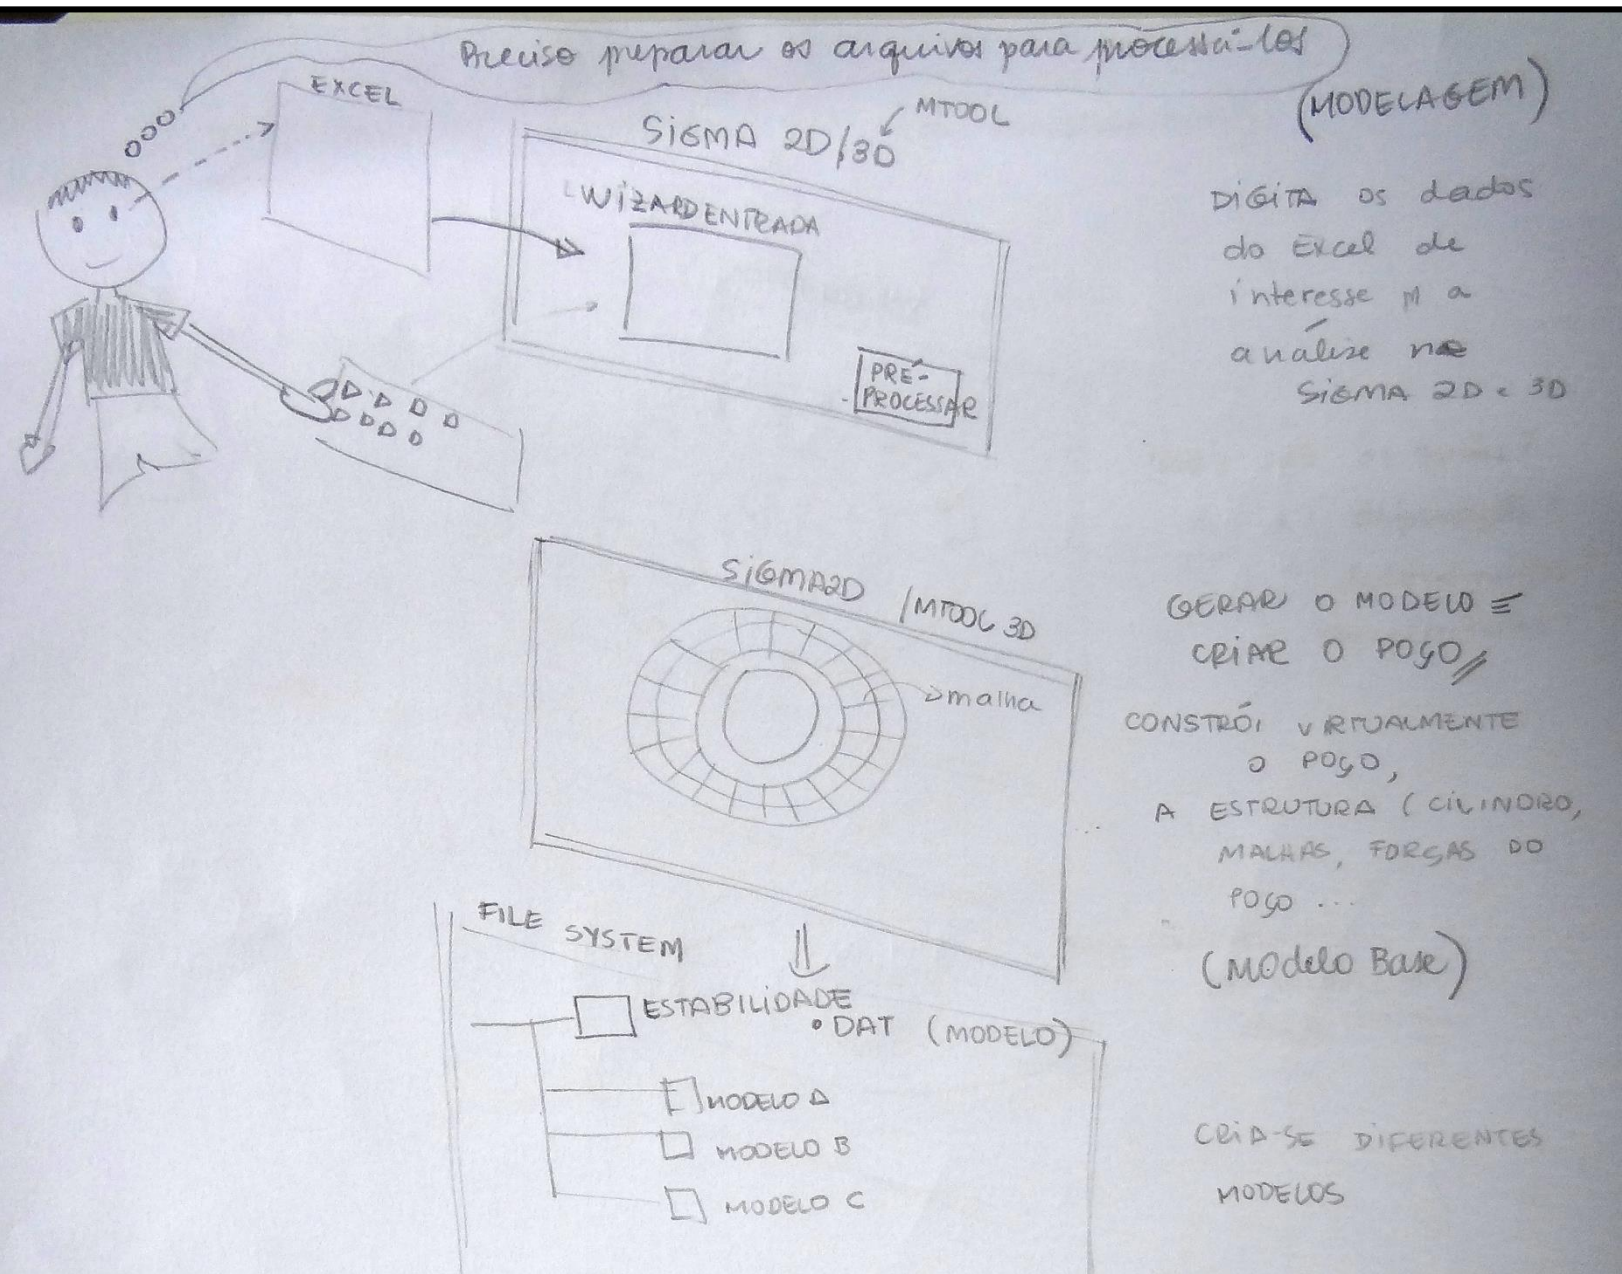 Preciso preparar os arquivos para processá-los
(MODELAGEM)
EXCEL
SIGMA 2D/3D
MTOOL
WIZARD ENTRADA
PRÉ-
PROCESSAR
DIGITA os dados
do Excel de
interesse p/ a
análise no
SIGMA 2D e 3D
SIGMA2D /MTOOL 3D
malha
GERAR O MODELO =
CRIAR O POÇO//
CONSTRÓI VIRTUALMENTE
O POÇO,
A ESTRUTURA (CILINDRO,
MALHAS, FORÇAS DO
POÇO ...
(Modelo Base)
FILE SYSTEM
ESTABILIDADE
• DAT (MODELO)
MODELO A
MODELO B
MODELO C
CRIA-SE DIFERENTES
MODELOS